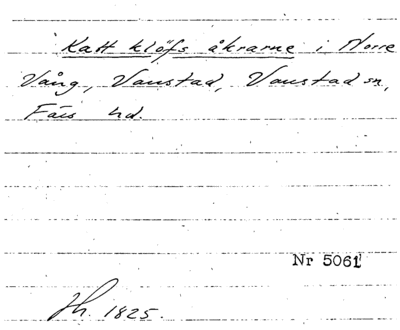 Katt klöfs åkrarne i Norre
Vång, Vanstad, Vanstad sn,
Färs hd.
Nr 5061
Jh. 1825.